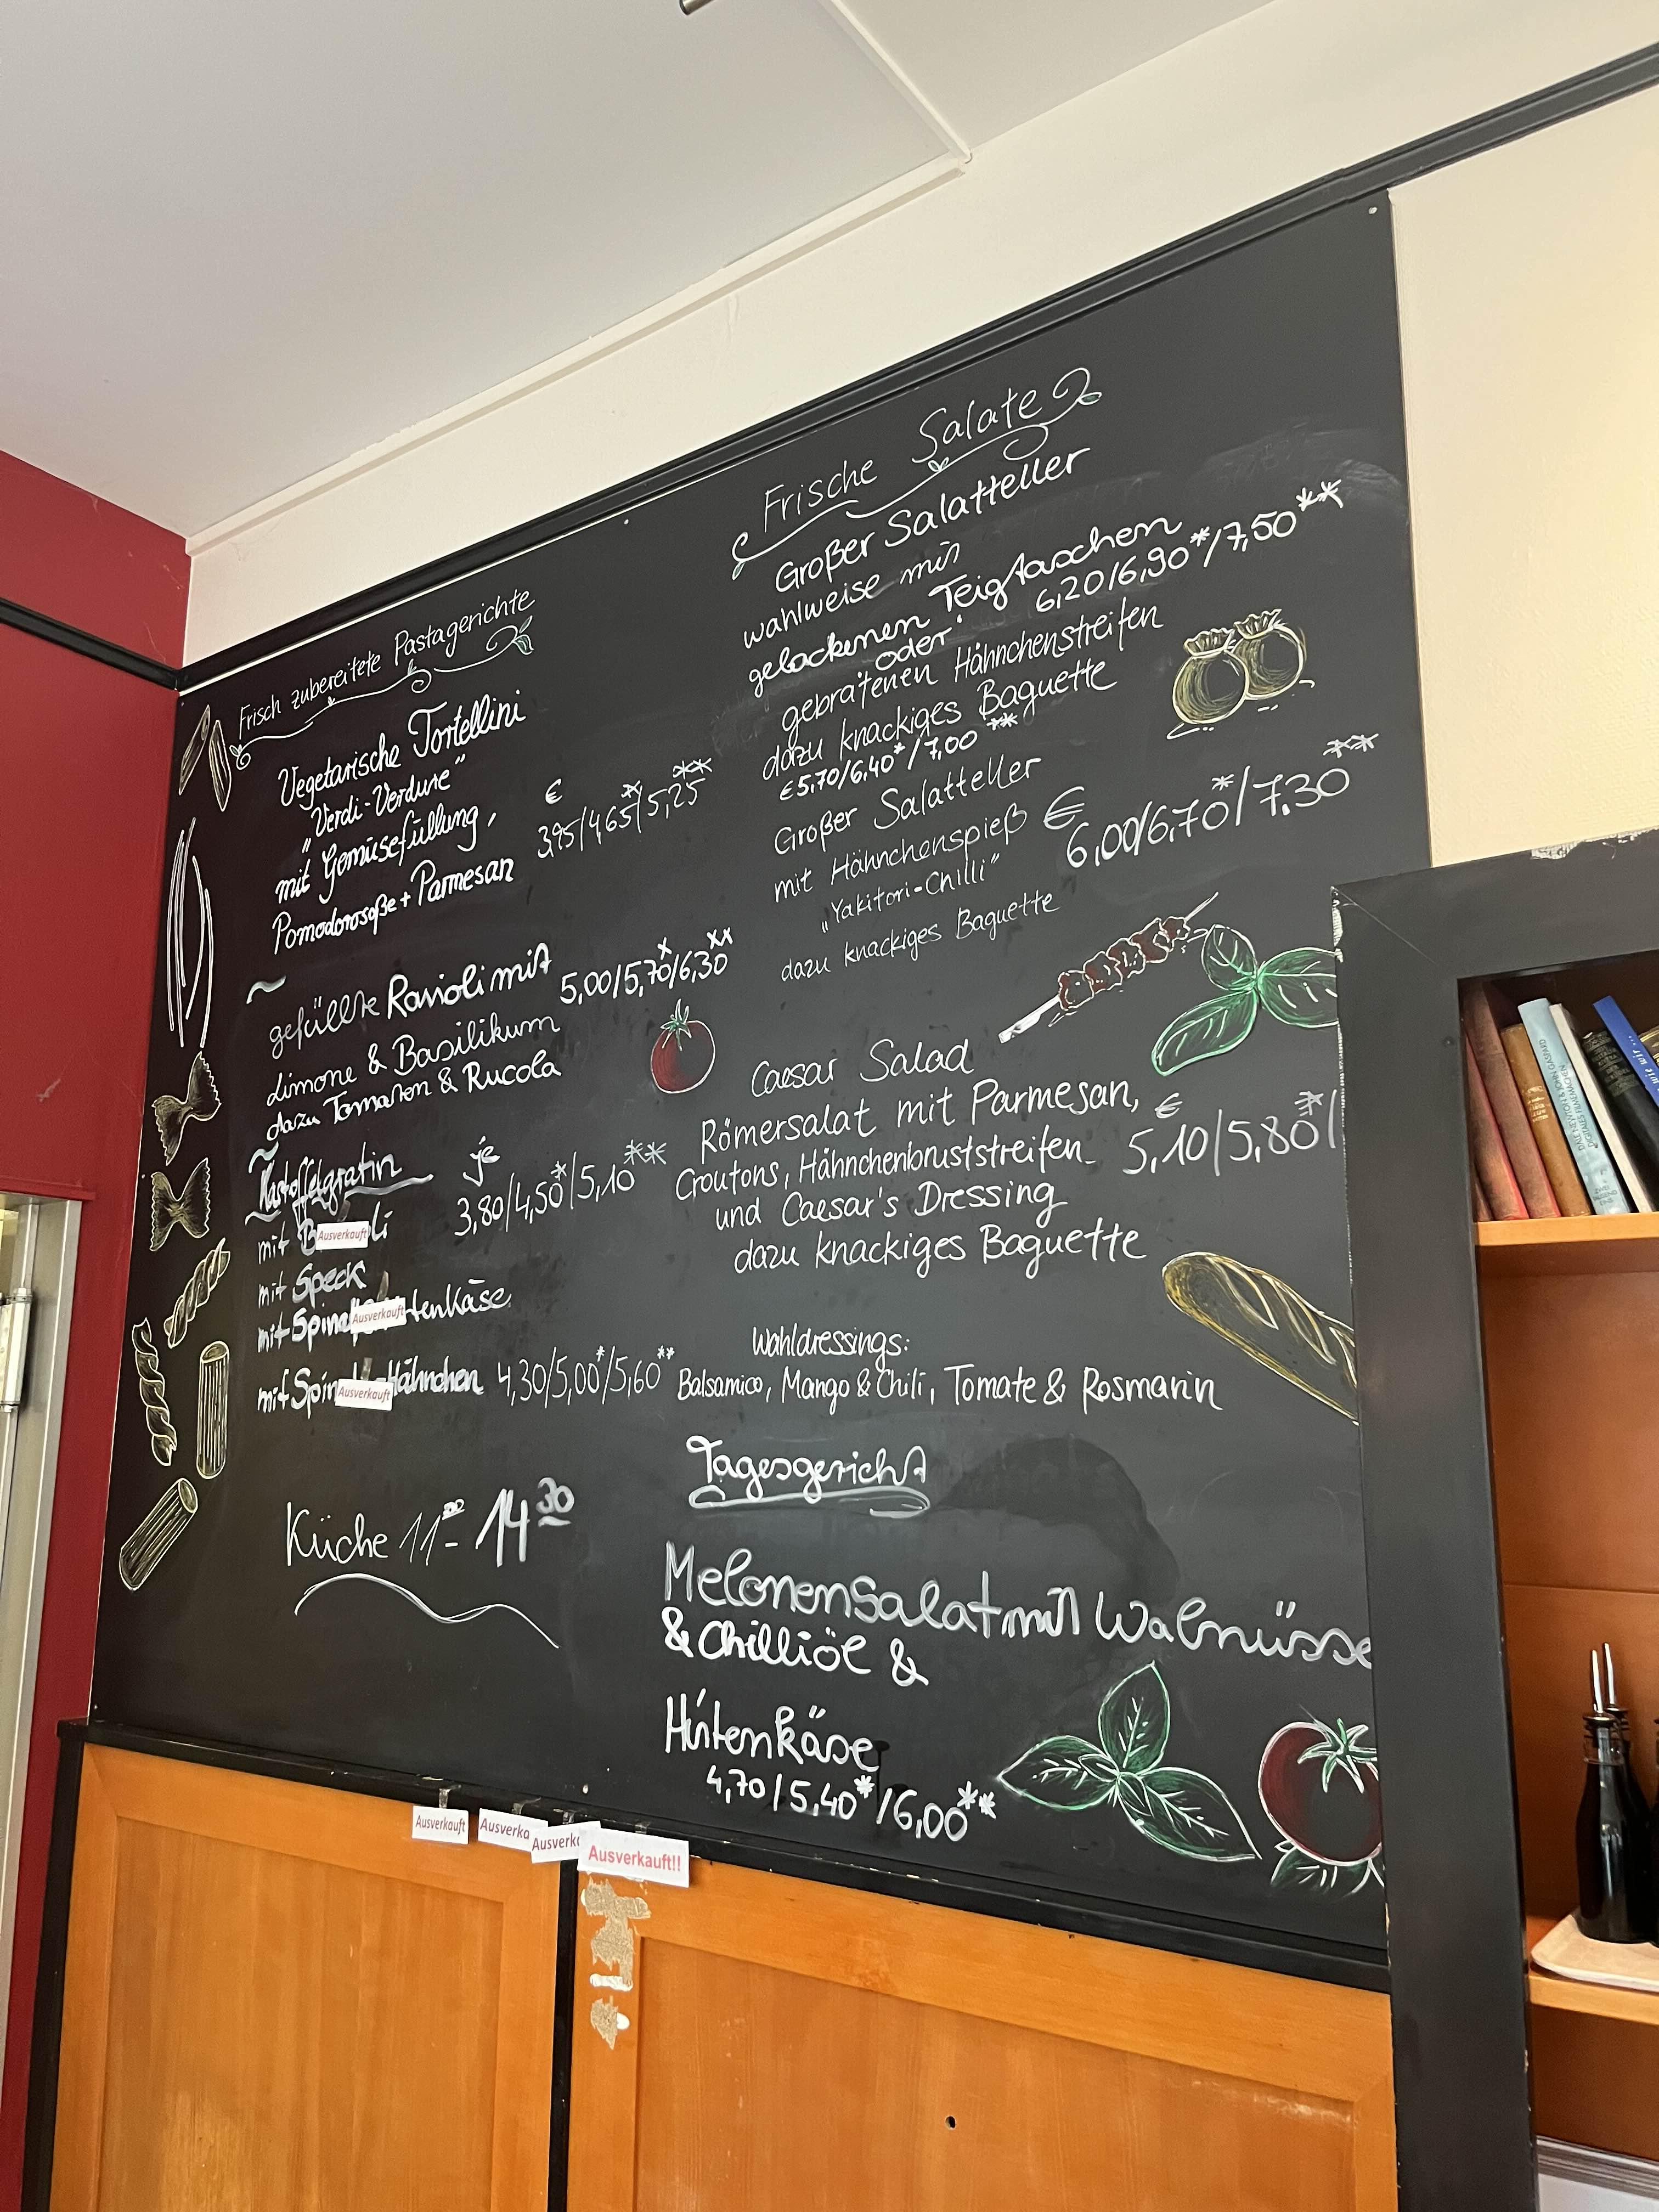 Frisch zubereitete Pastagerichte
Vegetarische Tortellini
"Verdi-Verdure"
mit Gemüsefüllung,
Pomodorosoße + Parmesan
€
3,95/4,65*/5,25**
~
gefüllte Ravioli mit
Limone & Basilikum
dazu Tomaten & Rucola
5,00/5,70*/6,30**
~
Kartoffelgratin
je
3,80/4,50*/5,10**
mit B
Ausverkauft
li
mit Speck
mit Spina
Ausverkauft
tenkäse
mit Spin
Ausverkauft
-Hähnchen 4,30/5,00*/5,60**
Küche 11⁰⁰ - 14³⁰
Frische Salate
Großer Salatteller
wahlweise mit
gebackenen Teigtaschen
6,20/6,90*/7,50**
oder
gebratenen Hähnchenstreifen
dazu knackiges Baguette
€ 5,70/6,40*/7,00**
Großer Salatteller
mit Hähnchenspieß €
"Yakitori-Chilli"
6,00/6,70*/7,30**
dazu knackiges Baguette
Caesar Salad
Römersalat mit Parmesan,
Croutons, Hähnchenbruststreifen
€
5,10/5,80*/
und Caesar's Dressing
dazu knackiges Baguette
Wahldressings:
Balsamico, Mango & Chili, Tomate & Rosmarin
Tagesgericht
Melonensalat mit Walnüsse
& Chilliöl &
Hirtenkäse
4,70/5,40*/6,00**
Ausverkauft
Ausverka
Ausverk
Ausverkauft!!